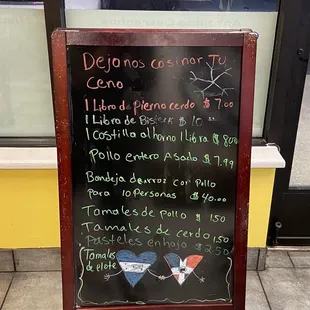 Dejanos cosinar Tu
Ceno
1 Libro de pierno cerdo $7.00
1 Libro de Bisteck $10.00
1 Costilla al horno 1 Libra $8.00
Pollo entero Asado $7.99
Bandeja de arroz con Pollo
Para 10 Personas $40.00
Tamales de pollo $1.50
Tamales de cerdo 1.50
Pasteles en hoja $2.50
Tamales
de elote